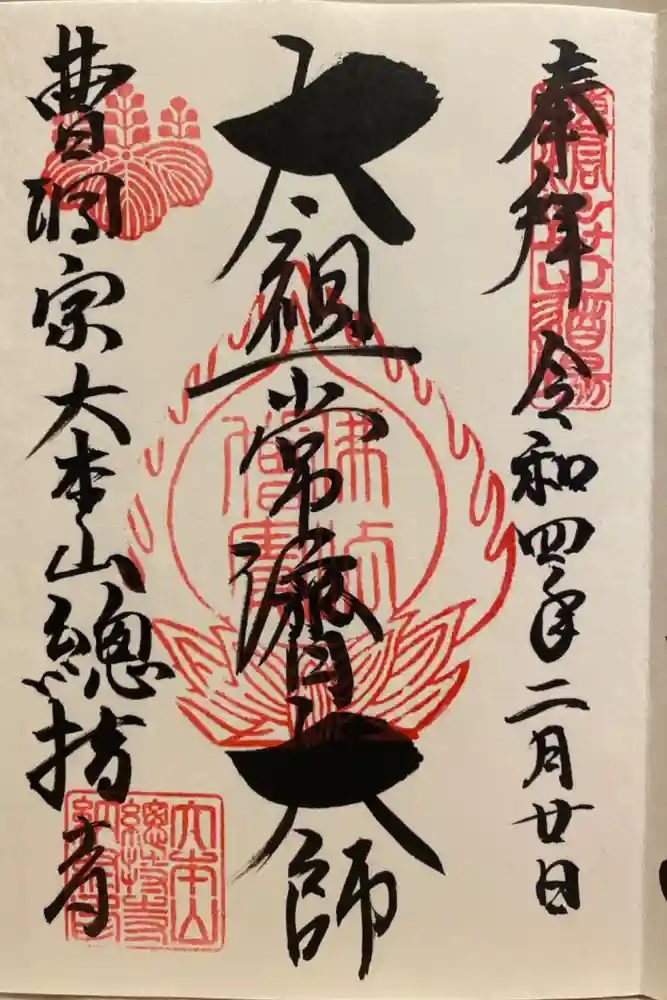 奉拝 令和四年二月廿日
太祖常濟大師
曹洞宗大本山總持寺
佛法
僧寶
大本山
總持寺